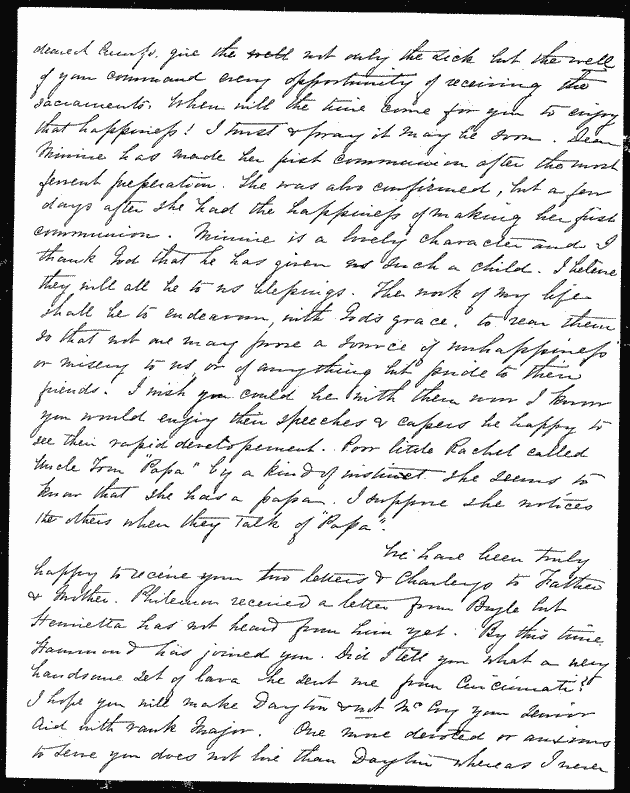 dearest Cump, give the well not only the sick but the well
of your command every opportunity of receiving the
sacraments. When will the time come for you to enjoy
that happiness! I trust & pray it may be soon. Dear
Minnie has made her first communion after the most
fervent preperation. She was also confirmed, but a few
days after she had the happiness of making her first
communion. Minnie is a lovely character and I
thank God that he has given us such a child. I believe
they will all be to us blessings. The work of my life
shall be to endeavour, with God's grace, to rear them
so that not one may prove a source of unhappiness
or misery to us or of anything but pride to their
friends. I wish you could be with them now I know
you would enjoy their speeches & capers be happy to
see their rapid developement. Poor little Rachel called
Uncle Tom "Papa" by a kind of instinct. She seems to
know that she has a papa. I suppose she notices
the others when they talk of "Papa".
We have been truly
happy to receive your two letters & Charley's to Father
& Mother. Philemon received a letter from Boyle but
Henrietta has not heard from him yet. By this time
Hammond has joined you. Did I tell you what a very
handsome set of lava he sent me from Cincinnati?
I hope you will make Dayton & not McCoy your Senior
Aid with rank Major. One more devoted or anxious
to serve you does not live than Dayton whereas I never